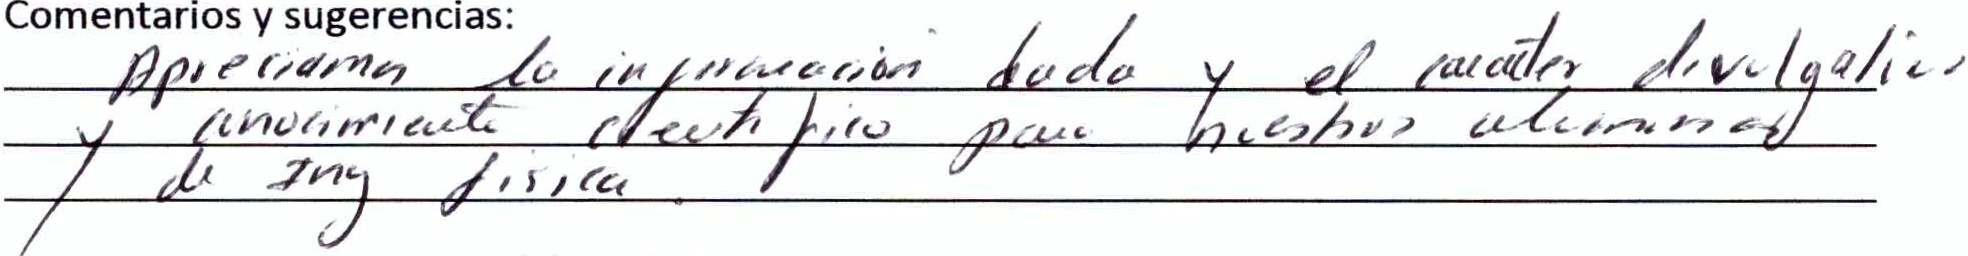 Comentarios y sugerencias:
Apreciamos la información dada y el caracter divulgativo
y conocimiento cientifico para nuestros alumnos
de Ing fisica.